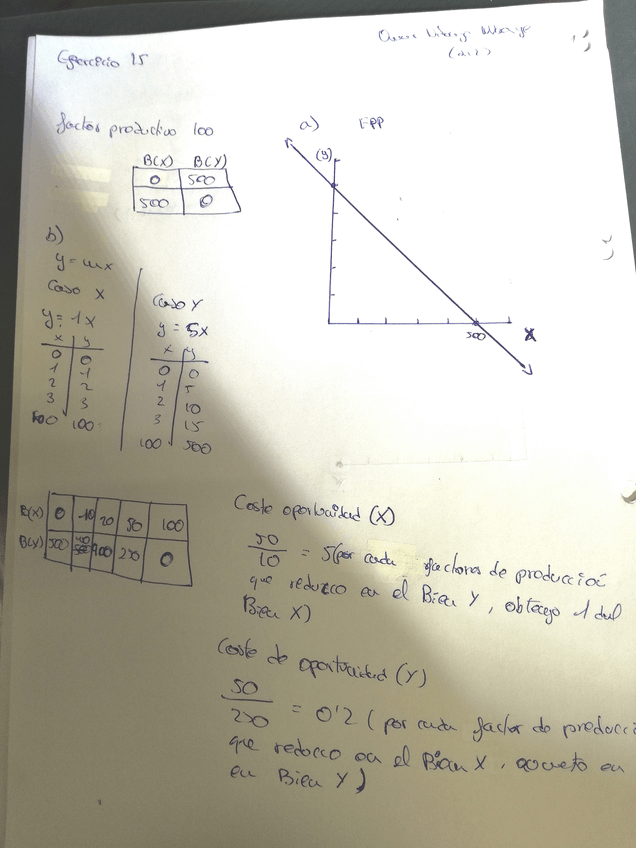 Ejercicio 15
(2ii)
factor productivo 100
B(X) B(Y)
0 500
500 0
a) FPP
(y)
500 X
b)
y = mx
Caso X
y = 1x
x y
0 0
1 1
2 2
3 3
100 100
Caso Y
y = 5x
x y
0 0
1 5
2 10
3 15
100 500
B(X) 0 10 20 50 100
B(X) 500 400 250 0
Coste oportunidad (X)
50
10
= 5 (por cada factores de producción
que reduzco en el Bien Y, obtengo 1 del
Bien X)
Coste de oportunidad (Y)
50
250
= 0'2 (por cada factor de producci
que reduzco en el Bien X, aumento en
en Bien Y)